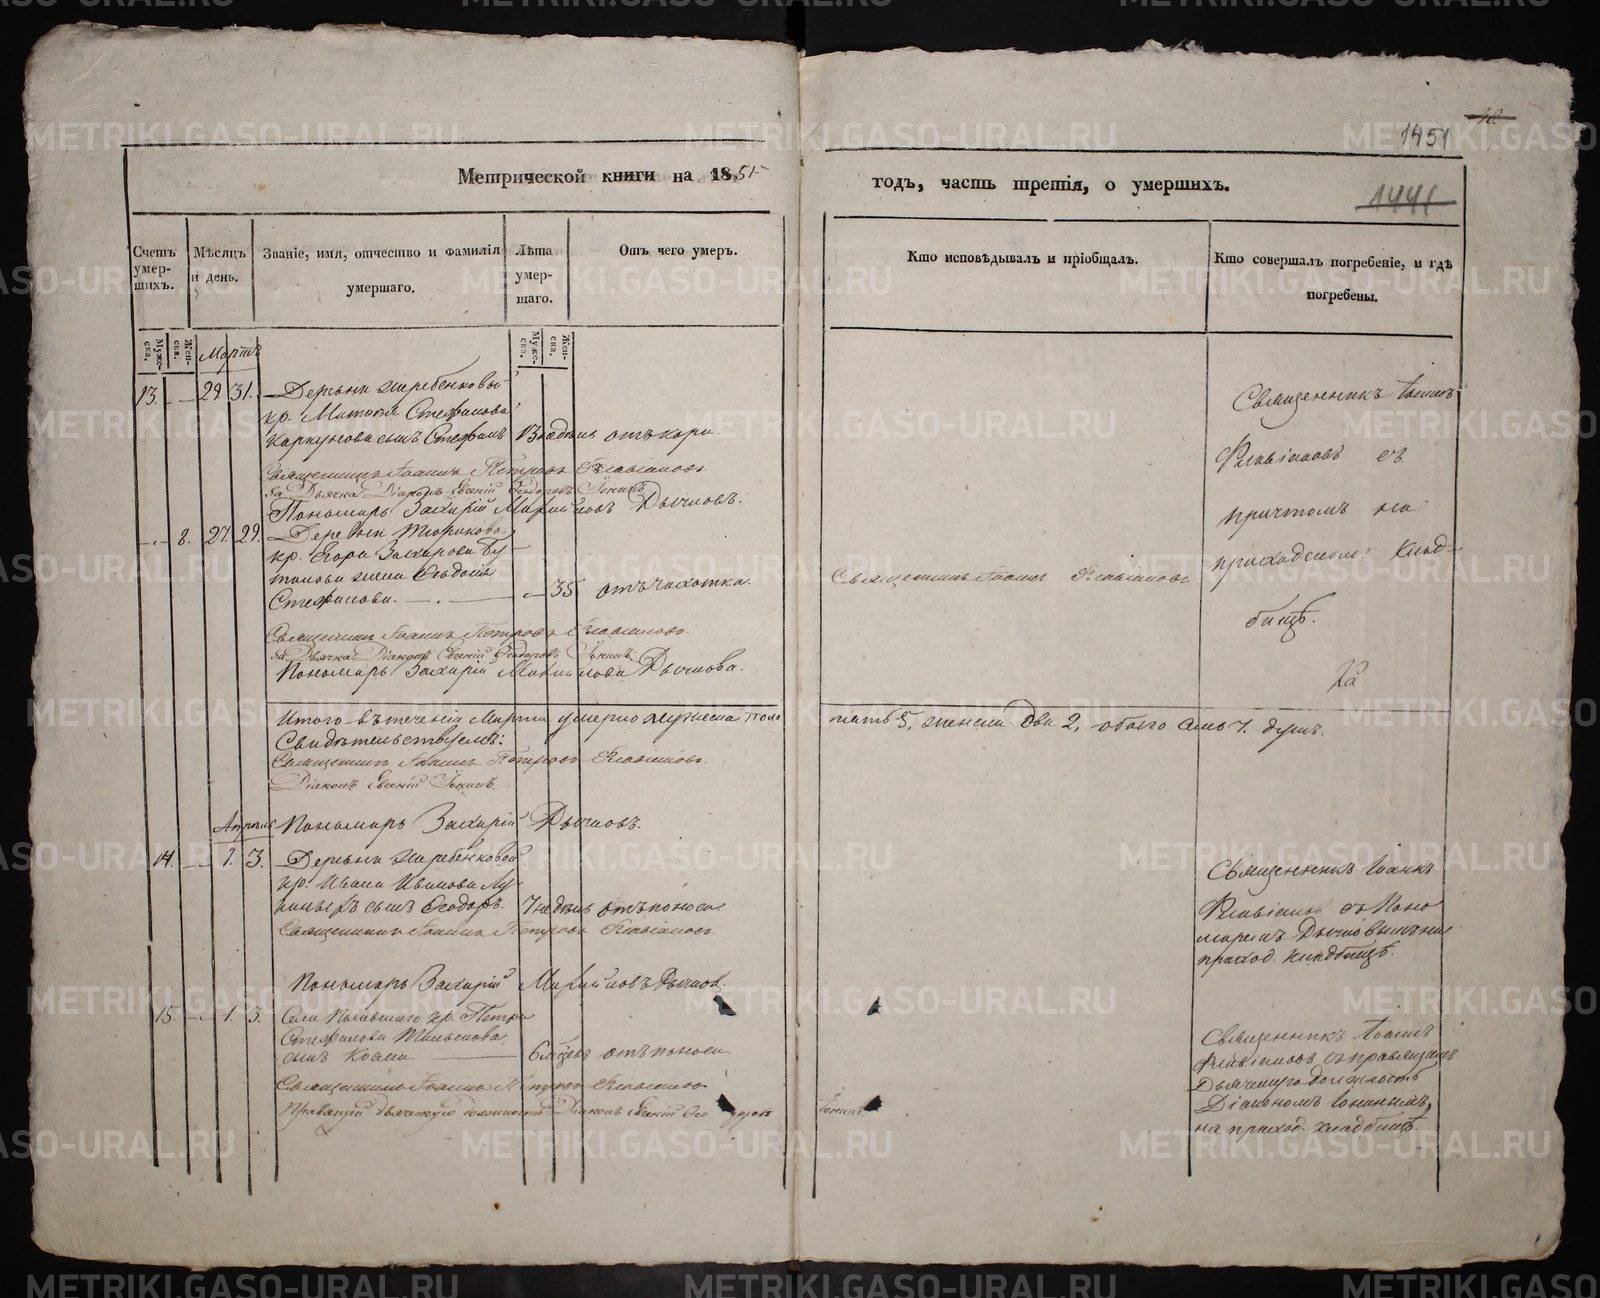 Метрической книги на 1851
годъ, часть третія, о умершихъ.
1451
1441
Счетъ умер-шихъ.
Мѣсяцъ и день.
Званіе, имя, отчество и фамилія умершаго.
Лѣта умер-шаго.
Отъ чего умеръ.
Кто исповѣдывалъ и пріобщалъ.
Кто совершалъ погребеніе, и гдѣ погребены.
Муже-ска.
Жен-ска.
Муже-ска.
Жен-ска.
Мартъ
13. 29. 31. Деревни Жеребенковой
кр. Стефанова
сынъ Стефанъ 13 недѣль отъ кори.
Священникъ Іоаннъ Петровъ Флавіановъ
За Дьячка Діаконъ Евсеній Ѳеодоровъ Іонинъ
Пономарь Захарій Дьячковъ.
Священникъ Іоаннъ
Флавіановъ съ
причтомъ на
приходскомъ клад-
бищѣ.
8. 27. 29. Деревни
кр. Егора Захарова
жена Ѳеодосія
Стефанова. 35 отъ чахотки.
Священникъ Іоаннъ Флавіановъ
Священникъ Іоаннъ Петровъ Флавіановъ
За Дьячка Діаконъ Евсеній Ѳеодоровъ Іонинъ
Пономарь Захарій Дьячковъ.
Итого въ теченіи Марта умерло мужеска пола пять 5, женска два 2, обоего семь 7. душъ.
Свидѣтельствуемъ:
Священникъ Іоаннъ Петровъ Флавіановъ.
Діаконъ Евсеній Іонинъ.
Пономарь Захарій Дьячковъ.
Апрѣль
14. 1. 3. Деревни Жеребенковой
кр. Ивана Иванова
сынъ Ѳеодоръ. 7 недѣль отъ поноса
Священникъ Іоаннъ Петровъ Флавіановъ.
Пономарь Захарій Дьячковъ.
Священникъ Іоаннъ
Флавіановъ съ Поно
маремъ Дьячковымъ на
приход. кладбищѣ.
15. 1. 3. Села кр. Петра
Стефанова
сынъ Косма. 6 мѣсяц. отъ поноса.
Священникъ Іоаннъ Петровъ Флавіановъ
Правящій дьяческую должность Діаконъ Евсеній Ѳеодоровъ Іонинъ
Священникъ Іоаннъ
Флавіановъ съ правящимъ
Дьяческую должность
Діакономъ Іонинымъ,
на приход. кладбищѣ.
METRIKI.GASO-URAL.RU